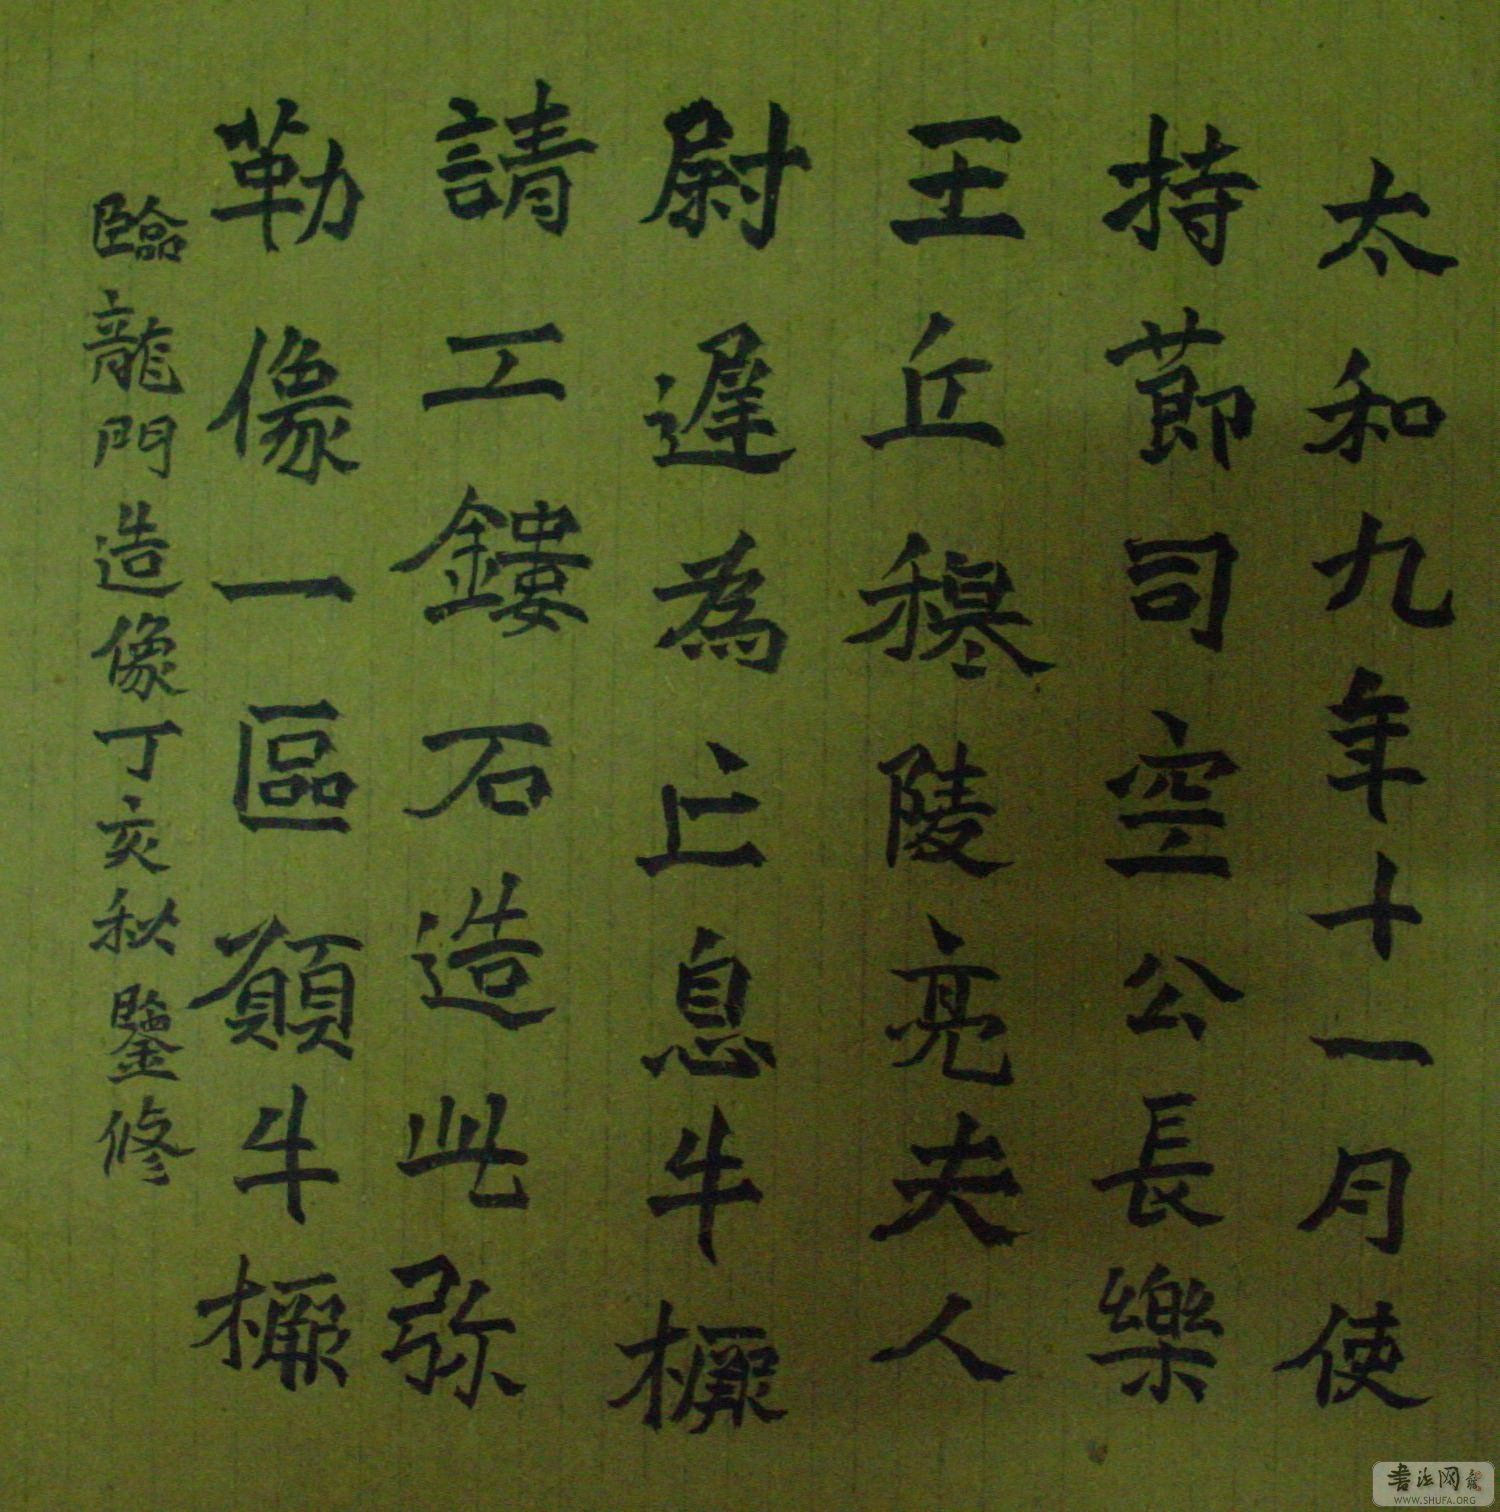 太和九年十一月使
持節司空公長樂
王丘穆陵亮夫人
尉遲為亡息牛橛
請工鏤石造此弥
勒像一區願牛橛
臨龍門造像丁亥秋鑒修
書法网
WWW.SHUFA.ORG